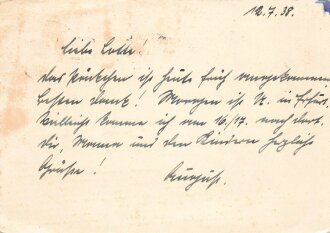 12.7.38.
Liebe Lotte!
Das Päckchen ist heute früh angekommen
besten Dank! Morgen ist U. in Erfurt
Vielleicht komme ich am 16/17. nach dort.
Dir, Mama und den Kindern herzliche
Grüße!
August.